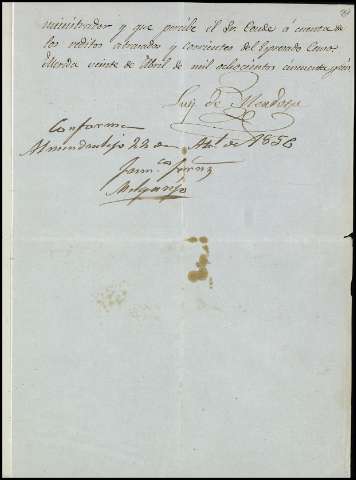 ministrador y que percibe el Sr. Conde á cuenta de
los reditos atrasados y corrientes del Espresado Censo
Merida veinte de Abril de mil ochocientos cincuenta y
Luis de Mendoza
Conforme
Almendralejo 22 de Abl de 1858
Fernz
Melgarejo